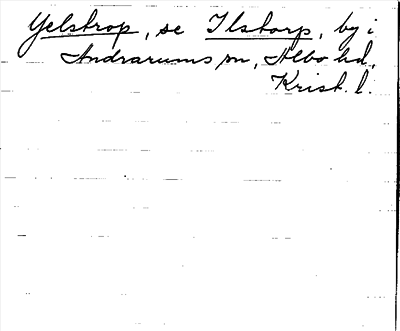 Yelstrop, se Ilstorp, by i
Andrarums sn, Albo hd,
Krist. l.